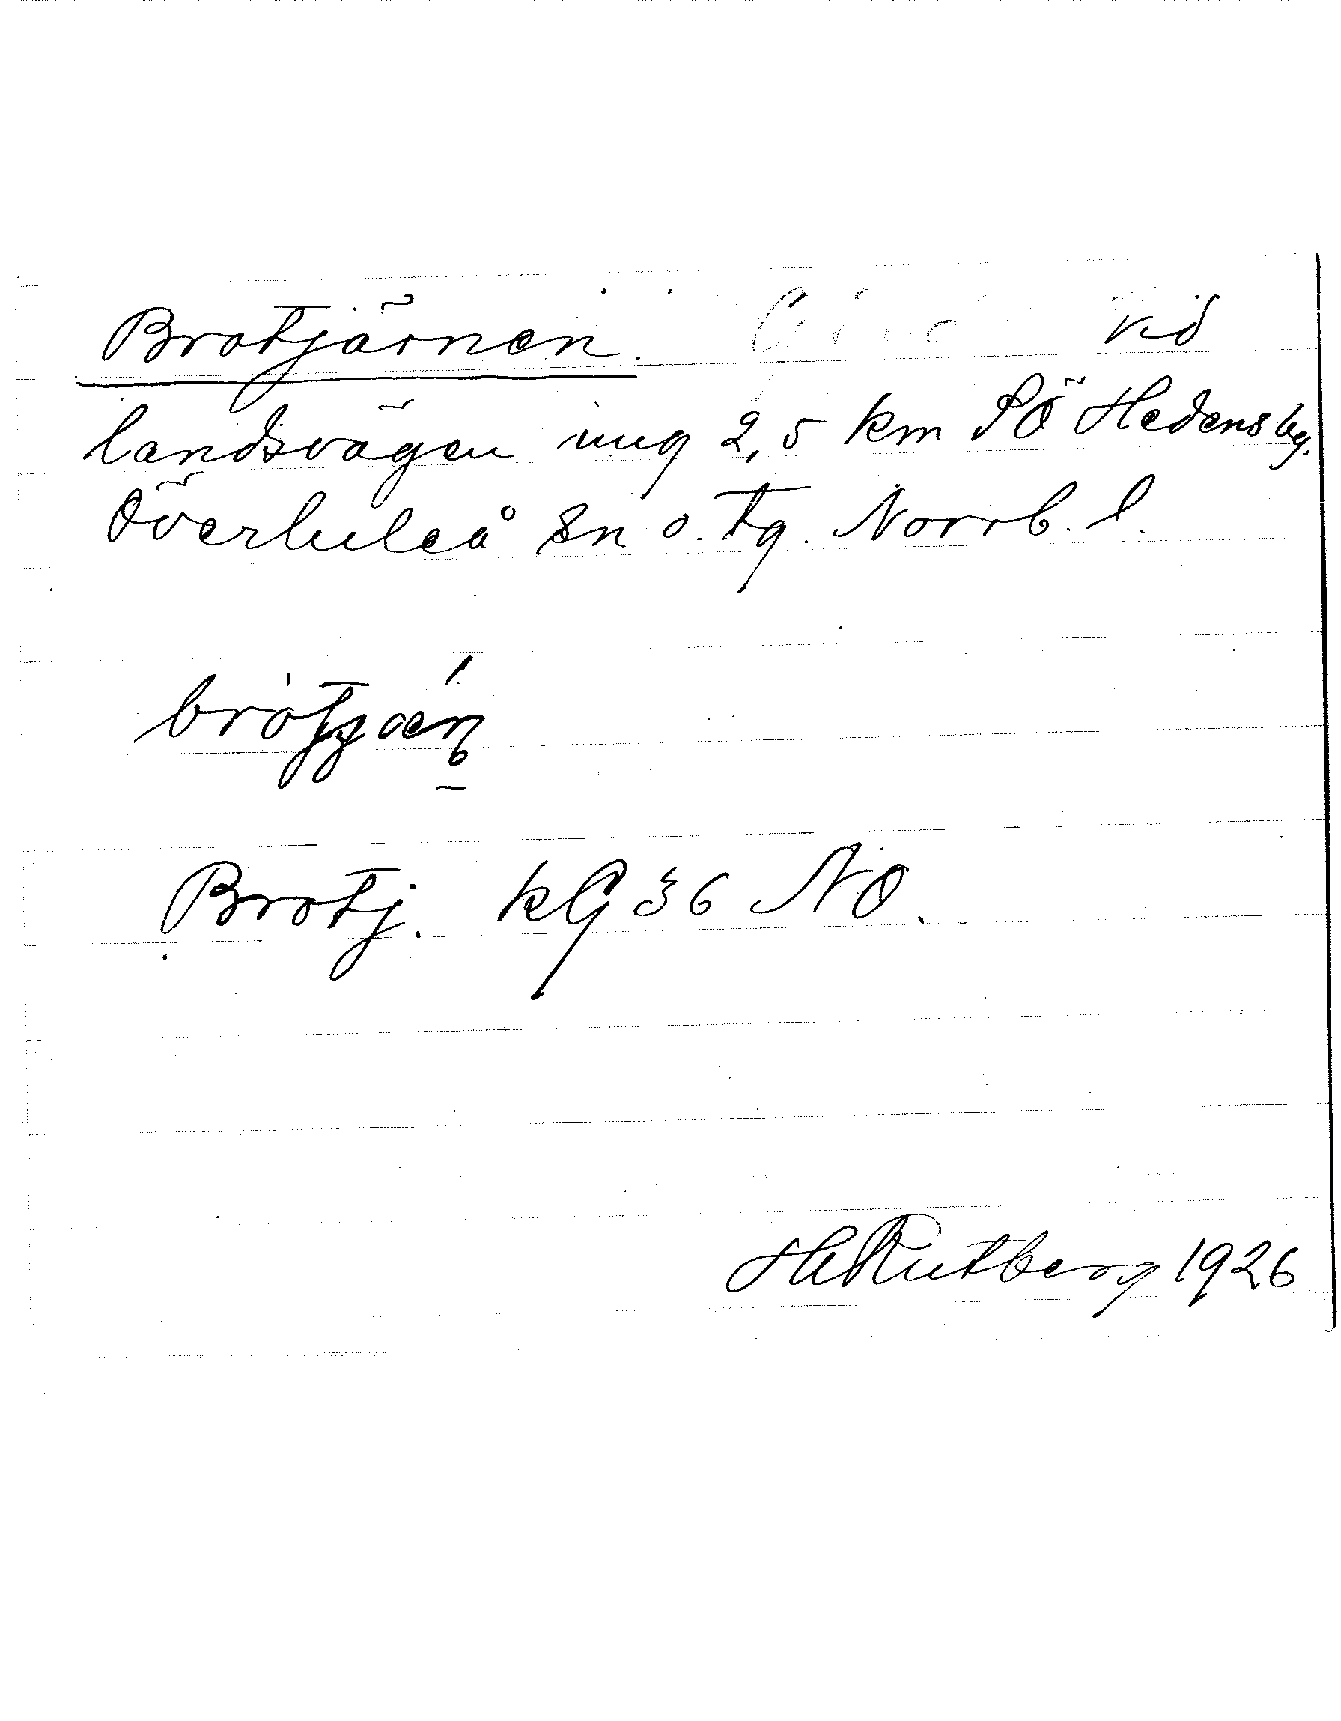 Brotjärnen. vid
landsvägen ung 2,5 km SÖ Hedens by.
Överluleå sn o. tg. Norrb. l.
Brotj. kG 36 NO.
H Rutberg 1926